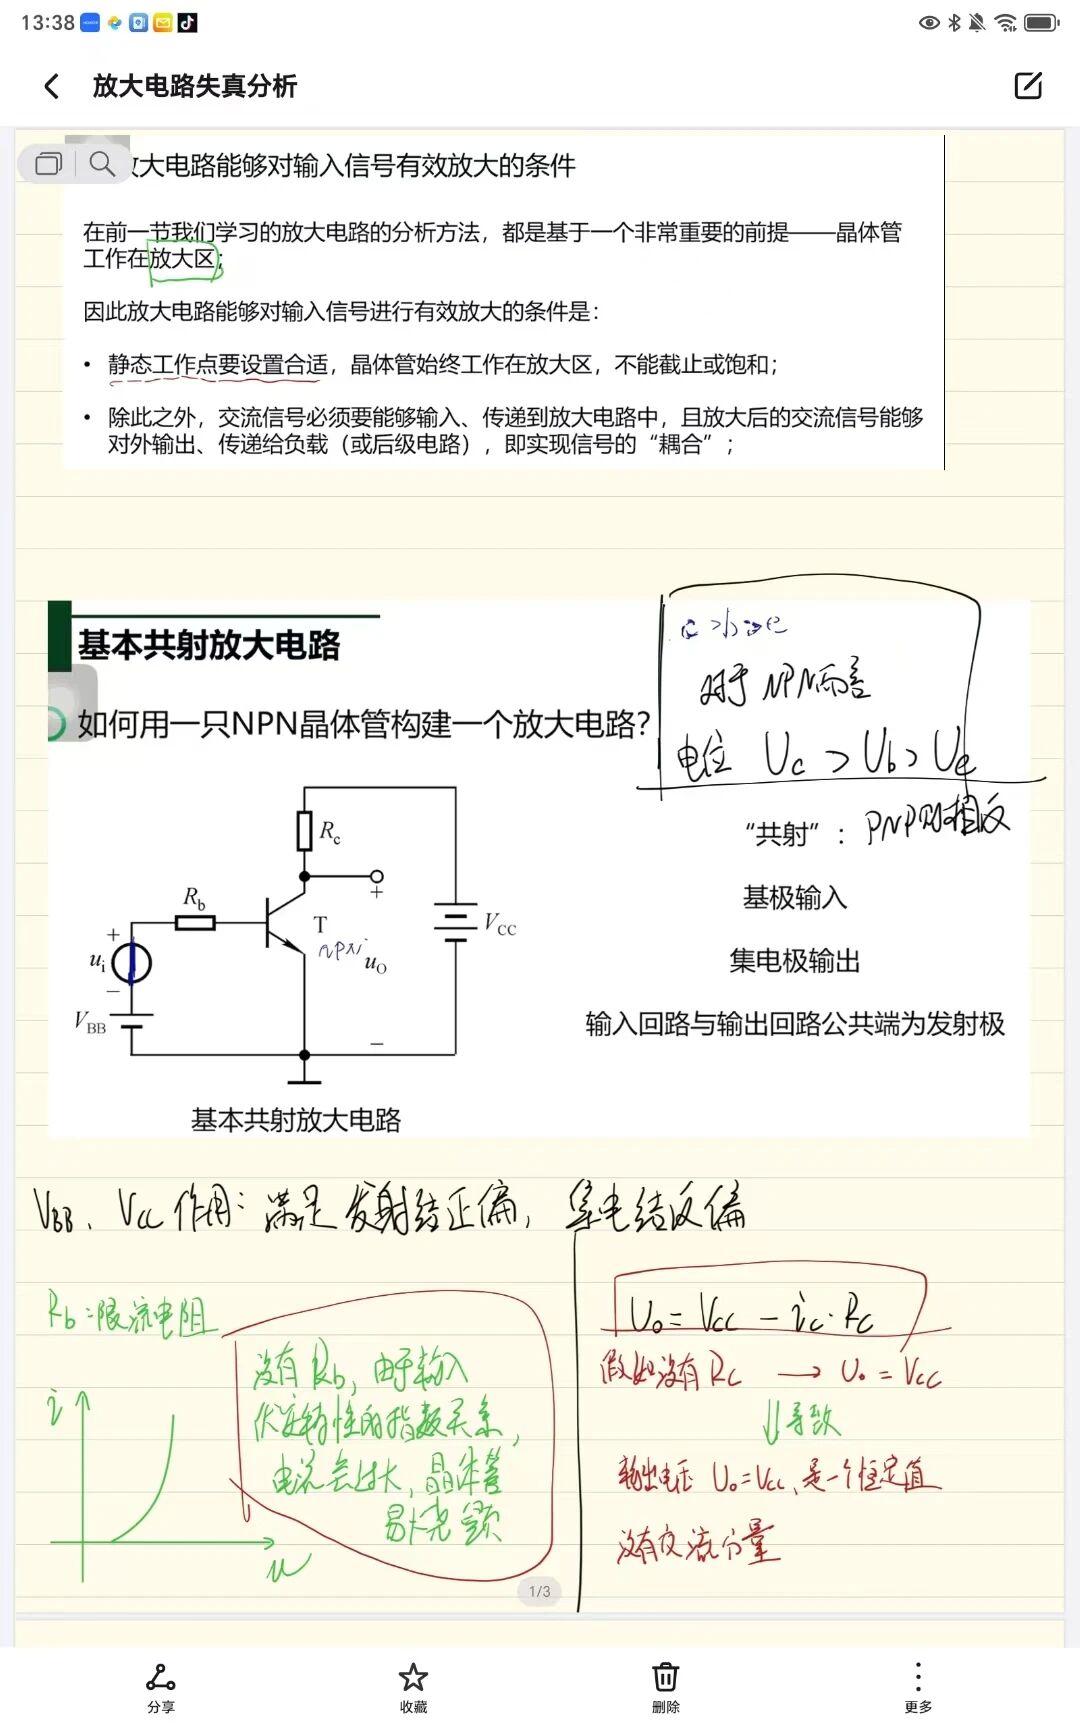 13:38
放大电路失真分析
大电路能够对输入信号有效放大的条件
在前一节我们学习的放大电路的分析方法，都是基于一个非常重要的前提——晶体管
工作在放大区；
因此放大电路能够对输入信号进行有效放大的条件是：
• 静态工作点要设置合适，晶体管始终工作在放大区，不能截止或饱和；
• 除此之外，交流信号必须要能够输入、传递到放大电路中，且放大后的交流信号能够
对外输出、传递给负载（或后级电路），即实现信号的“耦合”；
c>b>e
对于NPN而言
电位 Uc > Ub > Ue
基本共射放大电路
如何用一只NPN晶体管构建一个放大电路？
“共射”： PNP则相反
基极输入
集电极输出
输入回路与输出回路公共端为发射极
Rc
+
Rb
T
NPN
VCC
+
ui
uO
−
VBB
−
基本共射放大电路
VBB、VCC作用：满足发射结正偏，集电结反偏
Rb：限流电阻
没有Rb，由于输入
伏安特性的指数关系，
电流会过大，晶体管
易烧毁
i
u
Uo = VCC − ic·Rc
假如没有Rc → Uo = VCC
导致
输出电压 Uo=VCC、是一个恒定值
没有交流分量
1/3
分享
收藏
删除
更多